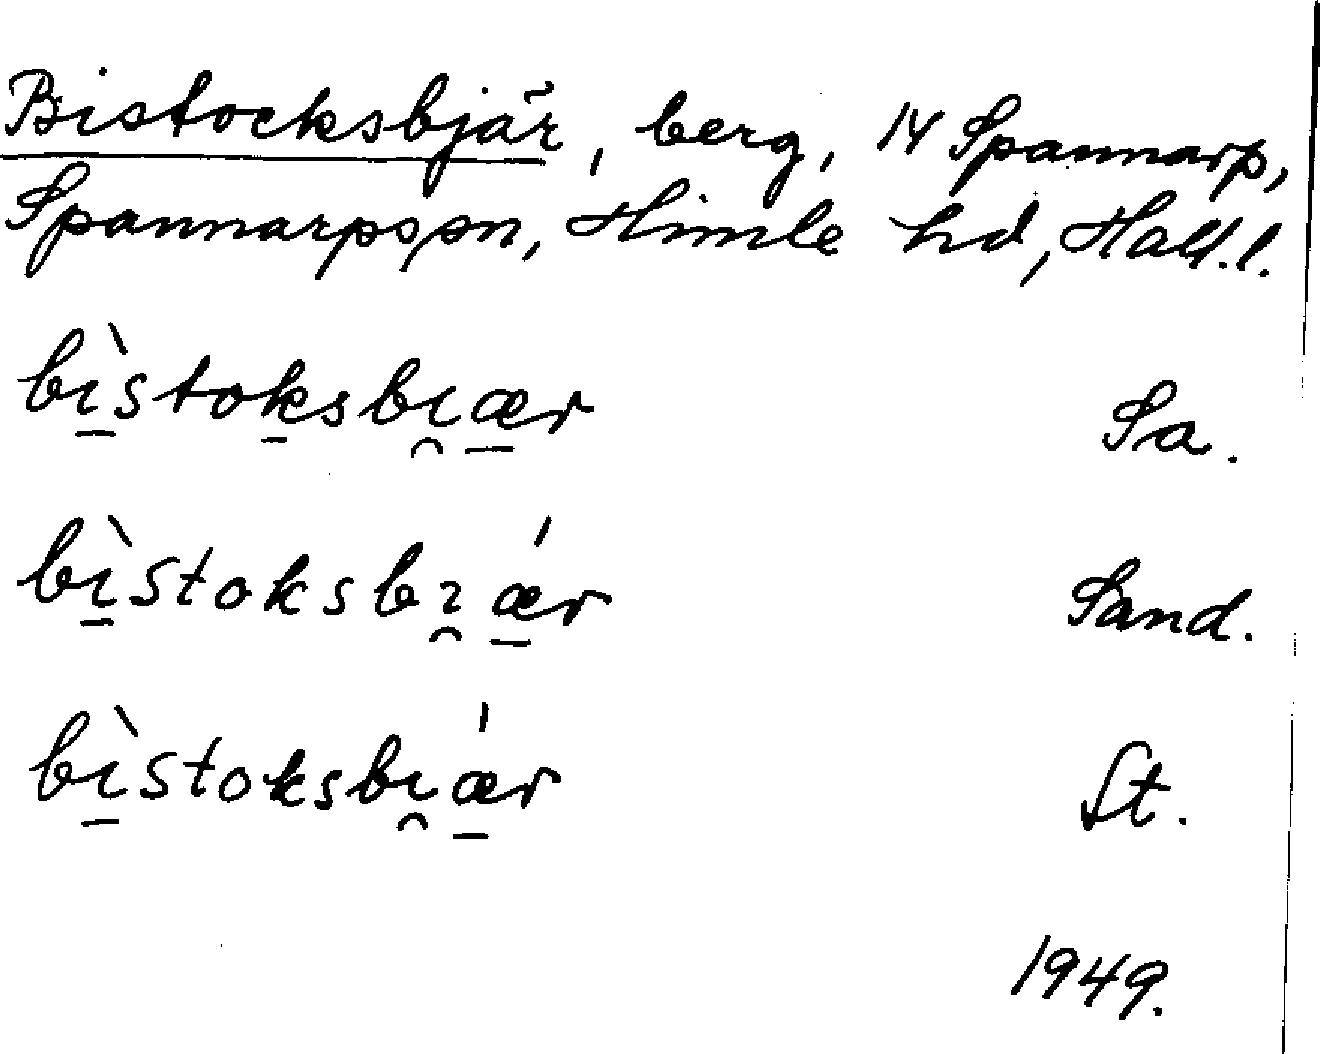 Bistocksbjär, berg, 14 Spannarp,
Spannarps sn, Himle hd, Hall. l.
bı̱̀stoḵsbı̯æ̱r Sa.
bı̱̀stoksbı̯ǽ̱r Sand.
bı̱̀stoksbı̯ǽ̱r St.
1949.